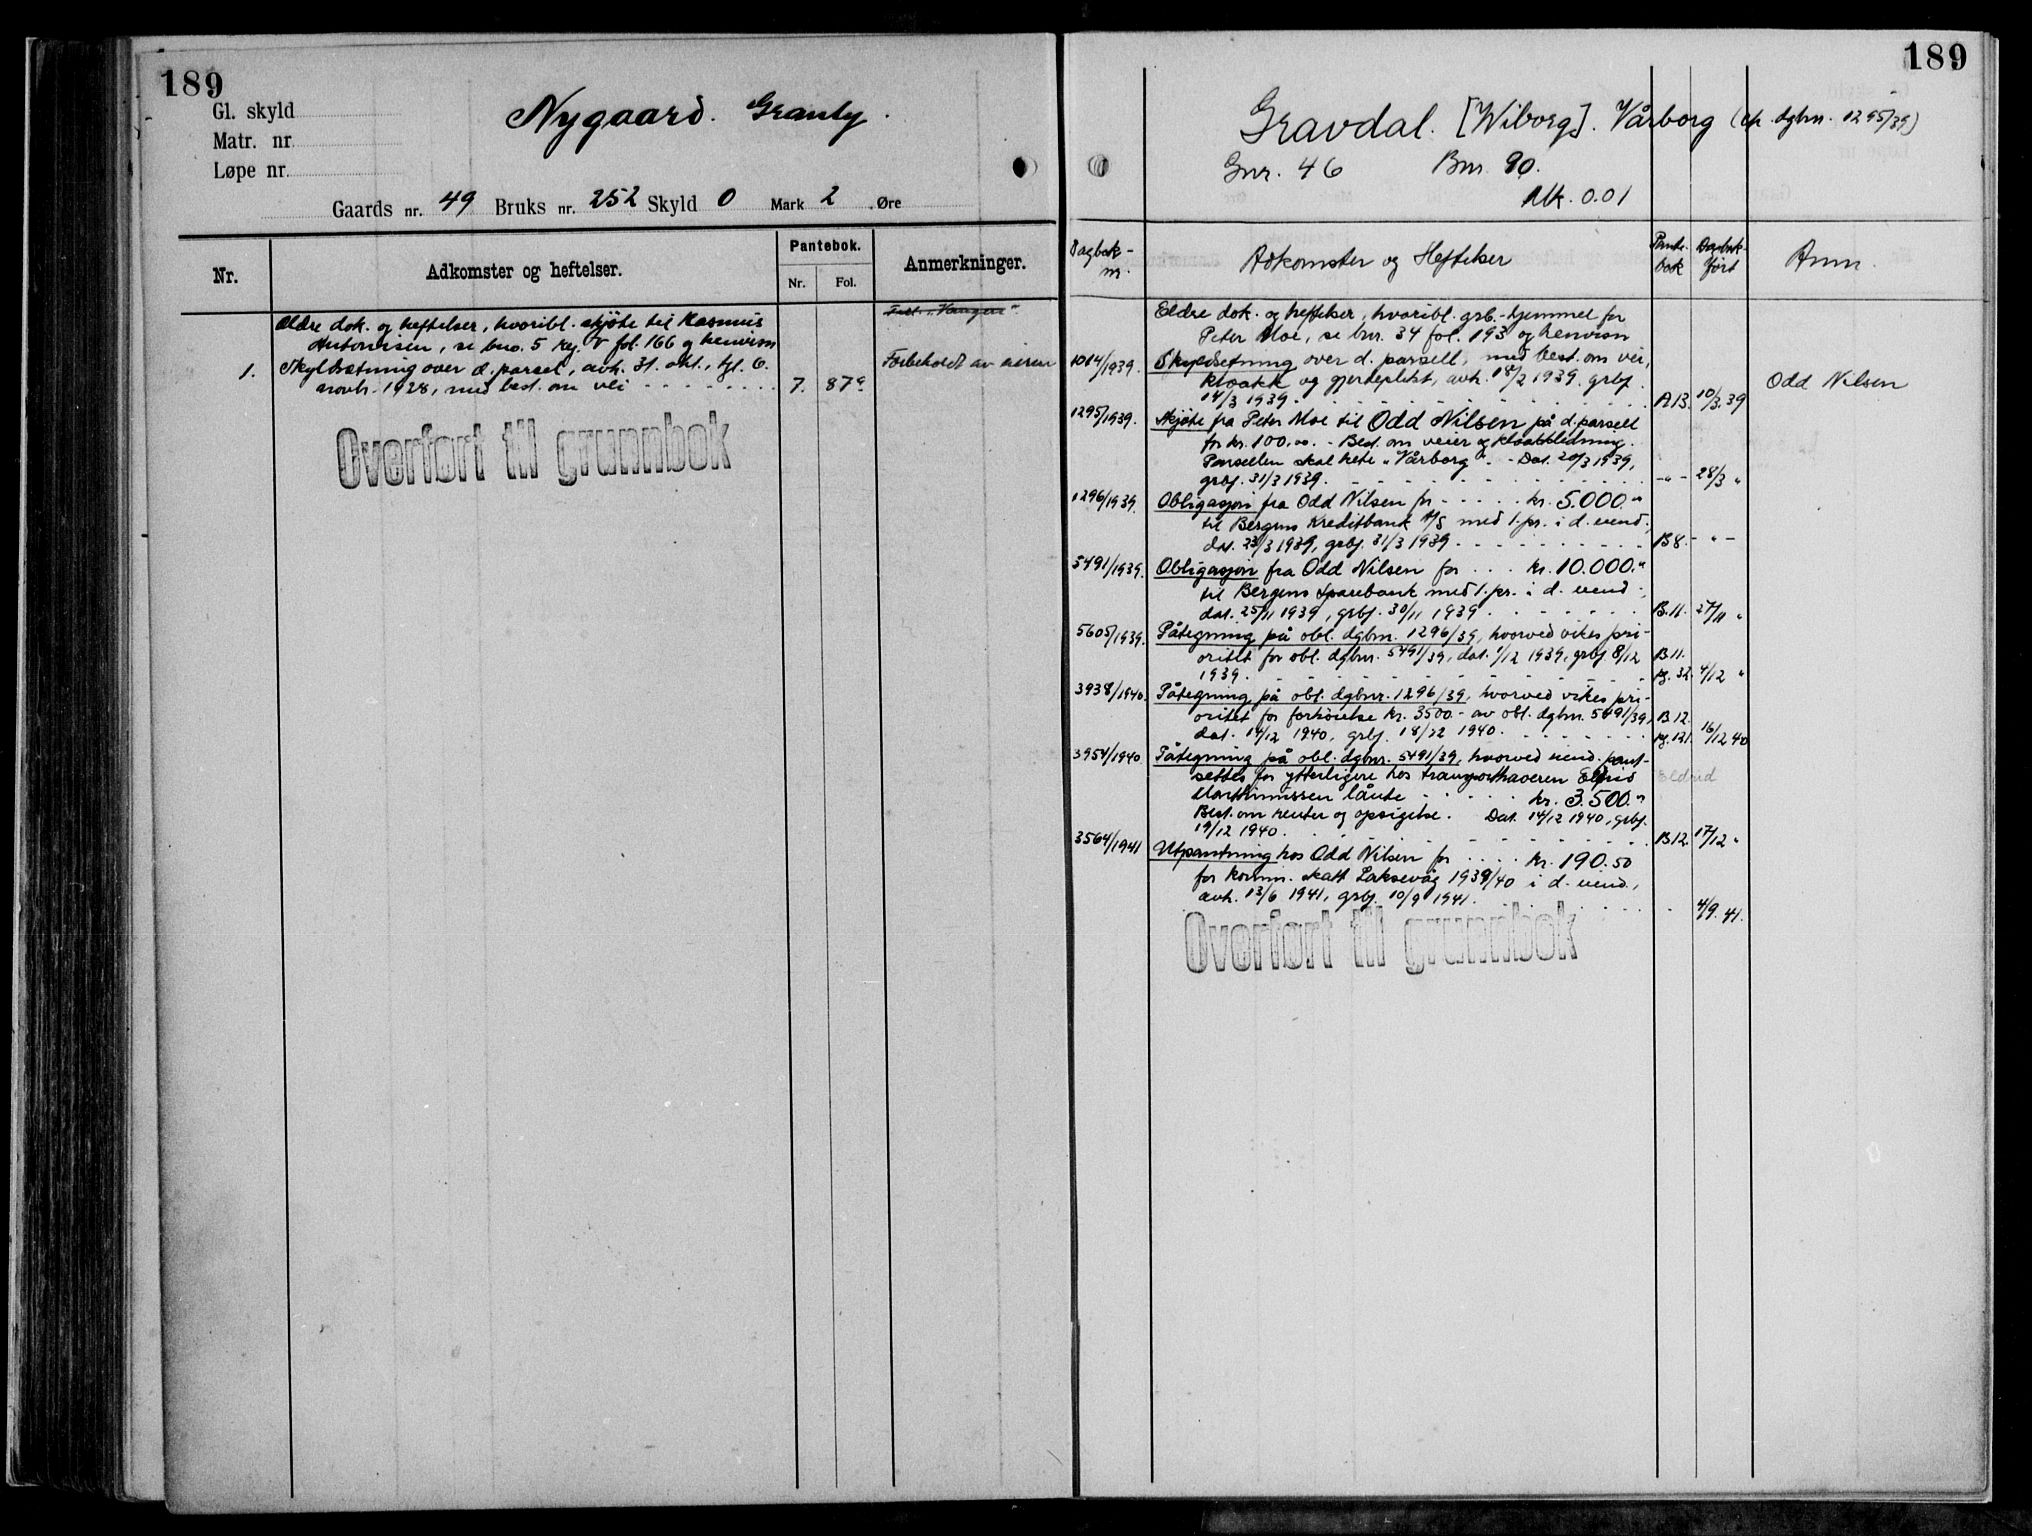 189
Gl. skyld
Matr. nr.
Løpe nr.
Nygaard. Granly.
Gaards nr. 49 Bruks nr. 252 Skyld 0 Mark 2 Øre
Nr.
Adkomster og heftelser.
Pantebok.
Nr. Fol.
Anmerkninger.
Ældre dok. og heftelser, hvoribl. skjøte til Rasmus
Antonisen, se bno. 5 reg. V fol. 166 og henvisn
1. Skyldsætning over d. parsel, avh. 31. okt., tgl. 6.
novbr. 1928, med best. om vei - - - - - - - - 7. 87a
"Haugen"
Forbeholdt av eieren
Overført til grunnbok
189
Gravdal. [Wiborg]. Vårborg (cfr. dgbnr. 1295/39)
Gnr. 46 Bnr. 90.
Mk. 0.01
Dagbok-
nr.
Adkomster og Heftelser
Pante-
bok
Dagbok-
ført
Anm.
Eldre dok. og heftelser, hvoribl. grb.-hjemmel for
Peter Moe, se bnr. 34 fol. 193 og henvisn
1014/1939. Skyldsetning over d. parsell, med best. om vei,
kloakk og gjerdeplikt, avh. 18/2 1939, grbf.
14/3 1939. A13. 10/3.39
Odd Nilsen
1295/1939. Skjøte fra Peter Moe til Odd Nilsen på d. parsell
for kr. 100,00. - Best. om veier og kloakkledning.
Parsellen skal hete "Vårborg". - Dat. 20/3 1939,
grbf. 31/3 1939. -"- 28/3 "
1296/1939. Obligasjon fra Odd Nilsen for - - - - - kr. 5.000.-
til Bergens Kreditbank A/S med 1. pr. i d. eiend.,
dat. 23/3 1939, grbf. 31/3 1939 B8. - " -
5491/1939. Obligasjon fra Odd Nilsen for . . . kr. 10.000.-
til Bergens Sparebank med 1. pr. i d. eiend.,
dat. 25/11 1939, grbf. 30/11 1939 B.11. 27/11 "
5605/1939. Påtegning på obl. dgbnr. 1296/39, hvorved vikes pri-
oritet for obl. dgbnr. 5491/39, dat. 1/12 1939, grbf. 8/12 B11.
1939. 32. 4/12 "
3938/1940. Påtegning på obl. dgbnr. 1296/39, hvorved vikes pri-
oritet for forhøielse kr. 3500.- av obl. dgbnr. 5491/39, B12.
dat. 14/12 1940, grbf. 18/12 1940. 121. 16/12 40
3954/1940. Påtegning på obl. dgbnr. 5491/39, hvorved eiend. pant-
settes for ytterligere hos transporthaveren Eldrid Eldrid
Marthinussen lånte - - - - - kr. 3.500.-
Best. om renter og opsigelse. Dat. 14/12 1940, grbf.
19/12 1940. B12. 17/12 "
3564/1941 Utpantning hos Odd Nilsen for . . . . kr. 190.50
for komm. skatt Laksevåg 1939/40 i d. eiend.,
avh. 13/6 1941, grbf. 10/9 1941. 4/9. 41.
Overført til grunnbok